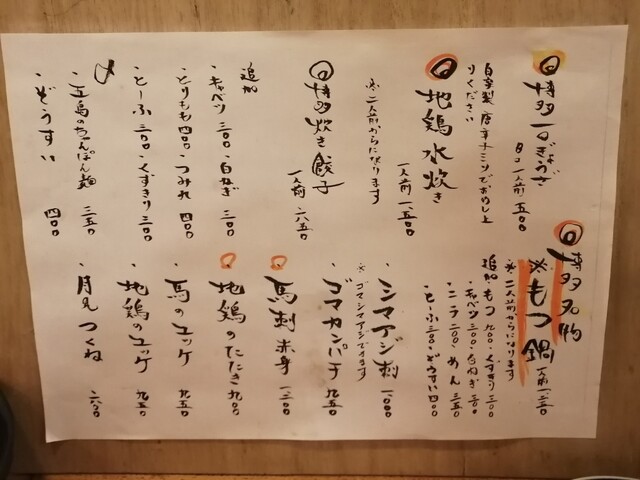 博多一口ぎょうざ
8コ一人前 五〇〇
自家製唐辛子ミソでおめし上
りください
地鶏水炊き
一人前 一、五〇〇
※二人前からになります
博多炊き餃子
一人前 六五〇
追加
・キャベツ 三〇〇・白ねぎ 三〇〇
・とりもも 四〇〇・つみれ 四〇〇
・とーふ 三〇〇・くずきり 三〇〇
〆
・五島のちゃんぽん麺 三五〇
・ぞうすい 四〇〇
博多名物
※もつ鍋
一人前
※二人前からになります
追加・もつ 九〇〇・くずきり 三〇〇
・キャベツ 三〇〇・白ねぎ 三〇〇
・ニラ 二〇〇・めん 三五〇
・とーふ 三〇〇・ぞうすい 四〇〇
・シマアジ刺 一、〇〇〇
※ゴマシマアジできます
・ゴマカンパチ 九五〇
・馬刺赤身 一、三〇〇
・地鶏のたたき 九〇〇
・馬のユッケ 九五〇
・地鶏のユッケ 九五〇
・月見つくね 六八〇